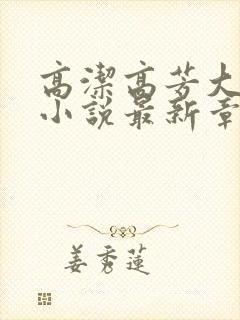 高潔高芳大
小說最新章
姜秀蓮